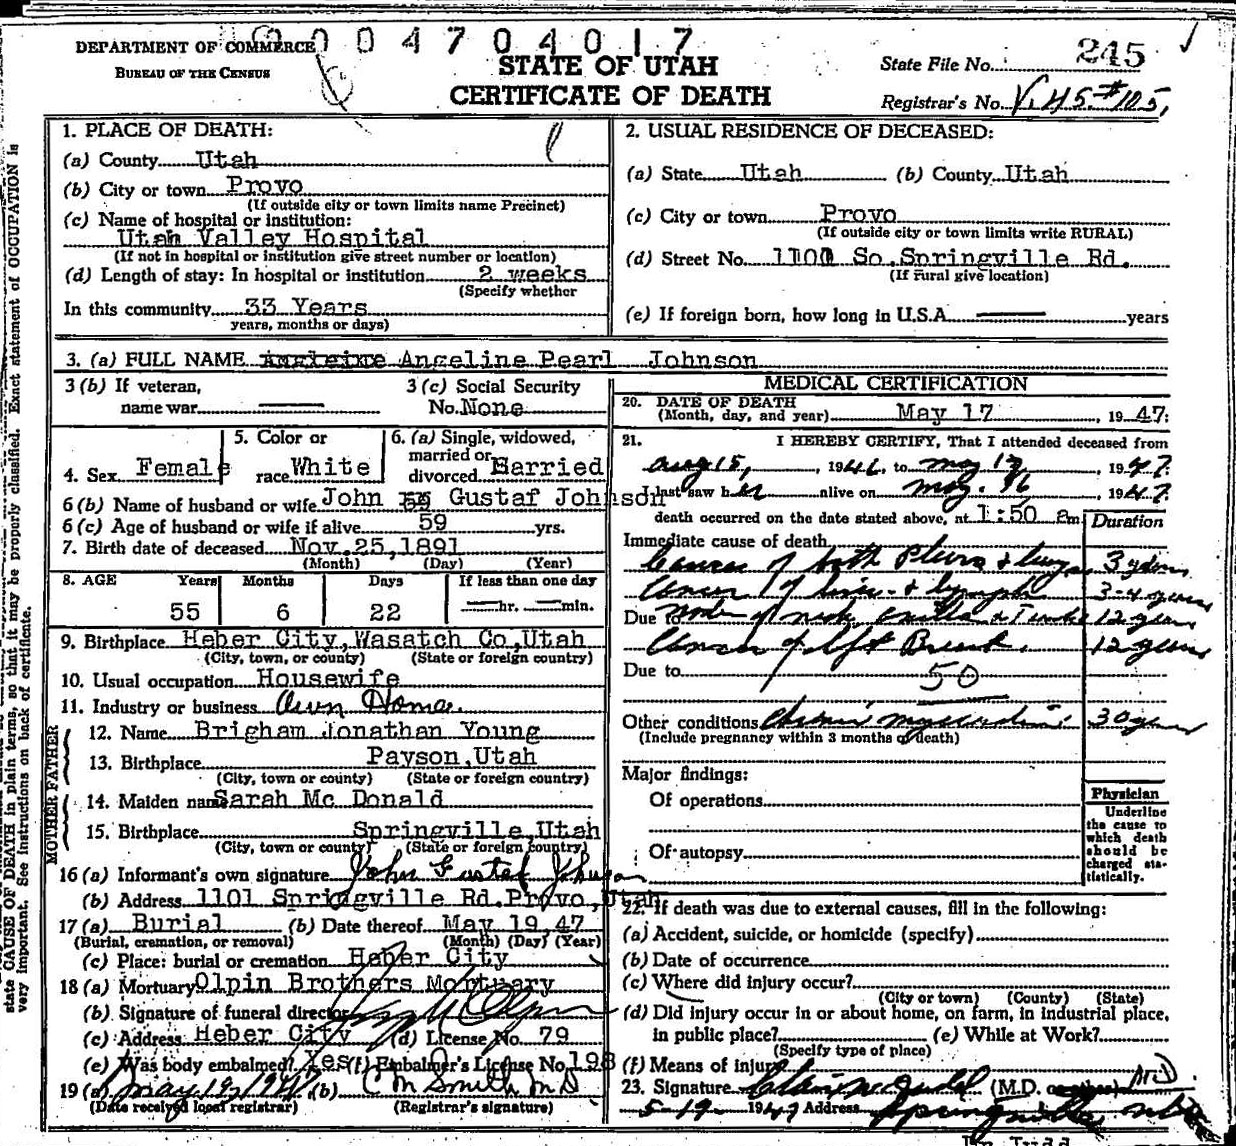 004704017
DEPARTMENT OF COMMERCE
BUREAU OF THE CENSUS
STATE OF UTAH
CERTIFICATE OF DEATH
State File No. 245
Registrar's No. V.45-#105,
state CAUSE OF DEATH in plain terms, so that it may be properly classified. Exact statement of OCCUPATION is
very important. See instructions on back of certificate.
1. PLACE OF DEATH:
(a) County Utah
(b) City or town Provo
(If outside city or town limits name Precinct)
(c) Name of hospital or institution:
Utah Valley Hospital
(If not in hospital or institution give street number or location)
(d) Length of stay: In hospital or institution 2 weeks
(Specify whether
In this community 33 Years
years, months or days)
2. USUAL RESIDENCE OF DECEASED:
(a) State Utah (b) County Utah
(c) City or town Provo
(If outside city or town limits write RURAL)
(d) Street No. 1101 So. Springville Rd.
(If rural give location)
(e) If foreign born, how long in U.S.A. years
3. (a) FULL NAME Angeline Pearl Johnson
3 (b) If veteran,
name war
3 (c) Social Security
No. None
4. Sex Female
5. Color or
race White
6. (a) Single, widowed,
married or
divorced Married
6 (b) Name of husband or wife John Gustaf Johnson
6 (c) Age of husband or wife if alive 59 yrs.
7. Birth date of deceased Nov. 25, 1891
(Month) (Day) (Year)
8. AGE Years Months Days If less than one day
55 6 22 hr. min.
9. Birthplace Heber City, Wasatch Co, Utah
(City, town, or county) (State or foreign country)
10. Usual occupation Housewife
11. Industry or business Own Home.
FATHER
12. Name Brigham Jonathan Young
13. Birthplace Payson, Utah
(City, town or county) (State or foreign country)
MOTHER
14. Maiden name Sarah Mc Donald
15. Birthplace Springville, Utah
(City, town or county) (State or foreign country)
16 (a) Informant's own signature John Gustaf Johnson
(b) Address 1101 Springville Rd. Provo, Utah
17 (a) Burial (b) Date thereof May 19, 47
(Burial, cremation, or removal) (Month) (Day) (Year)
(c) Place: burial or cremation Heber City
18 (a) Mortuary Olpin Brothers Mortuary
(b) Signature of funeral director Olpin
(c) Address Heber City (d) License No. 79
(e) Was body embalmed? Yes (f) Embalmer's License No. 198
19 (a) May 19, 1947 (b) C M Smith M D
(Date received local registrar) (Registrar's signature)
MEDICAL CERTIFICATION
20. DATE OF DEATH
(Month, day, and year) May 17, 1947.
21. I HEREBY CERTIFY, That I attended deceased from
Aug 15, 1946, to May 17, 1947.
I last saw her alive on May. 16 1947.
death occurred on the date stated above, at 1:50 am
Duration
Immediate cause of death
Cancer of both Pleura & lungs 3 years
Cancer of liver & lymph 3-4 years
Due to node of neck, axilla & 12 years
Cancer of left Breast. 12 years
Due to 50
Other conditions Chronic myocarditis 30 years
(Include pregnancy within 3 months of death)
Major findings:
Of operations
Of autopsy
Physician
Underline
the cause to
which death
should be
charged sta-
tistically.
22. If death was due to external causes, fill in the following:
(a) Accident, suicide, or homicide (specify)
(b) Date of occurrence
(c) Where did injury occur?
(City or town) (County) (State)
(d) Did injury occur in or about home, on farm, in industrial place,
in public place? (e) While at Work?
(Specify type of place)
(f) Means of injury
23. Signature (M.D. or other) MD
5-19- 1947 Address Springville
Dr Judd